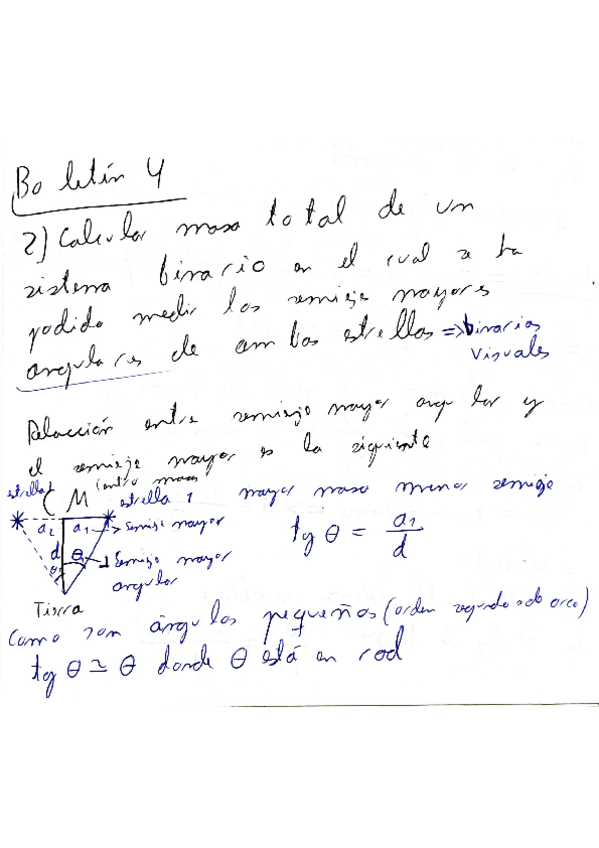 Boletín 4
2) Calcular masa total de un
sistema binario en el cual se ha
podido medir los semieje mayores
angulares de ambos estrellas => binarios
visuales
Relacción entre semieje mayor angular y
el semieje mayor es la siguiente
estrella
CM (entro masas
estrella 1
mayor masa menor semieje
a2
a1 -> semieje mayor
tg θ = a1
d
d
θ1 -> Semieje mayor
angular
Tierra
Como son ángulos pequeños (orden segundos de arco)
tg θ ≃ θ donde θ está en rad